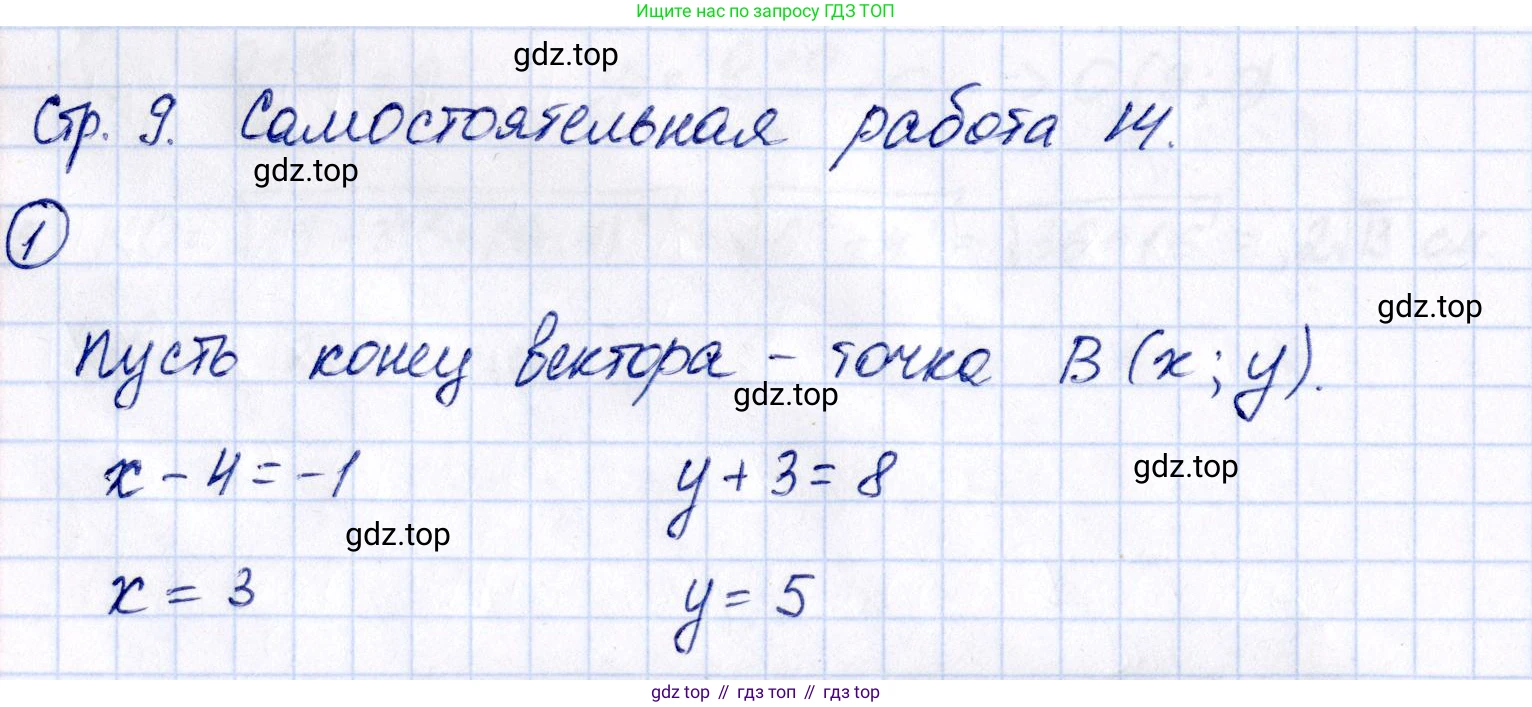 Ищите нас по запросу ГДЗ ТОП
gdz.top
Стр. 9. Самостоятельная работа 14.
gdz.top
1
gdz.top
Пусть конец вектора – точка B (x; y).
gdz.top
x - 4 = -1 y + 3 = 8
gdz.top
gdz.top
x = 3 y = 5
gdz top // гдз топ // гдз top